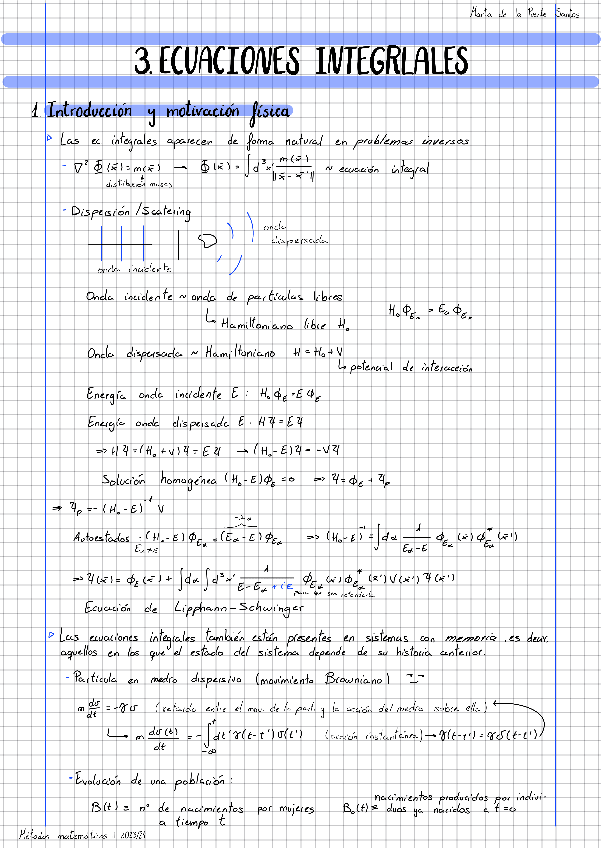 Marta de la Puente Santos
3. ECUACIONES INTEGRLALES
1. Introducción y motivación física
▷ Las ec integrales aparecen de forma natural en problemas inversos
- ∇² Φ(x⃗) = m(x⃗) → Φ(x⃗) = ∫d³x' m(x⃗)/||x⃗ - x⃗'|| ~ ecuación integral
distribución masas
- Dispersión / Scatering
onda
dispersada
onda incidente
Onda incidente ~ onda de partículas libres
H₀ϕ_Eα = Eα ϕ_Eα
↳ Hamiltoniano libre H₀
Onda dispersada ~ Hamiltoniano H = H₀ + V
↳ potencial de interacción
Energía onda incidente E : H₀ ϕ_E = E ϕ_E
Energía onda dispersada E : HΨ = EΨ
⇒ HΨ = (H₀ + V)Ψ = EΨ → (H₀ - E)Ψ = -VΨ
Solución homogénea (H₀ - E)ϕ_E = 0 ⇒ Ψ = ϕ_E + Ψp
⇒ Ψp = -(H₀ - E)⁻¹ V
Autoestados : (H₀ - E) ϕ_Eα = (Eα - E) ϕ_Eα ⇒ (H₀ - E)⁻¹ = ∫dα 1/(Eα - E) ϕ_Eα(x) ϕ*_Eα(x')
⇒ Ψ(x⃗) = ϕ_E(x⃗) + ∫dα ∫d³x' 1/(E - Eα + iε) ϕ_Eα(x) ϕ*_Eα(x') V(x') Ψ(x')
Ecuación de Lipphann-Schwinger
▷ Las ecuaciones integrales también están presentes en sistemas con memoria, es decir,
aquellos en los que el estado del sistema depende de su historia anterior.
- Partícula en medio dispersivo (movimiento Browniano)
m dv/dt = -γv (retardo entre el mov. de la part. y la acción del medio sobre ella)
↳ m dv(t)/dt = -∫_{-∞}^{t} dt' γ(t-t') v(t') (acción instantánea) → γ(t-t') = γδ(t-t')
- Evolución de una población :
B(t) ≡ nº de nacimientos por mujeres
a tiempo t
B₀(t) ≡ nacimientos producidos por indivi-
duos ya nacidos a t=0
Métodos matemáticos I 2023/24